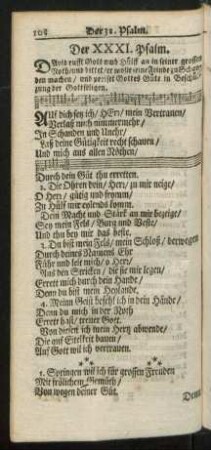 108 Der 31. Psalm.
Der XXXI. Psalm.
David rufft Gott umb Hülff an in seiner grossen
Noth/ und bittet/ er wolle seine Feinde zu Schanden
machen/ und preiset Gottes Güte in Beschützung
der Gottseligen.
Auf dich setz ich/ HErr/ mein Vertrauen/
Verlaß mich nimmermehr/
In Schanden und Unehr/
Laß deine Gütigkeit recht schauen/
Und mich aus allen Nöthen/
Durch dein Güt thu erretten.
2. Die Ohren dein/ HErr/ zu mir neige/
O Herr/ gütig und fromm/
Zu Hülff mir eylends komm.
Dein Macht und Stärk an mir bezeige/
Sey mein Fels/ Burg und Veste/
Und thu bey mir das beste.
3. Du bist mein Fels/ mein Schloß/
Durch deines Namens Ehr
Führe und leit mich/ o Herr/
Aus den Stricken/ die sie mir legen/
Errett mich durch dein Hände/
Denn du bist mein Heylande.
4. Meinn Geist befehl ich in dein Hände/
Denn du mich in der Noth
Errett hast/ treuer Gott.
Von diesen ich mein Hertz abwende/
Die auf Eitelkeit bauen/
Auf Gott wil ich vertrauen.
5. Springen wil ich für grossen Freuden
Mit frölichem Gemüth/
Von wegen deiner Güt.